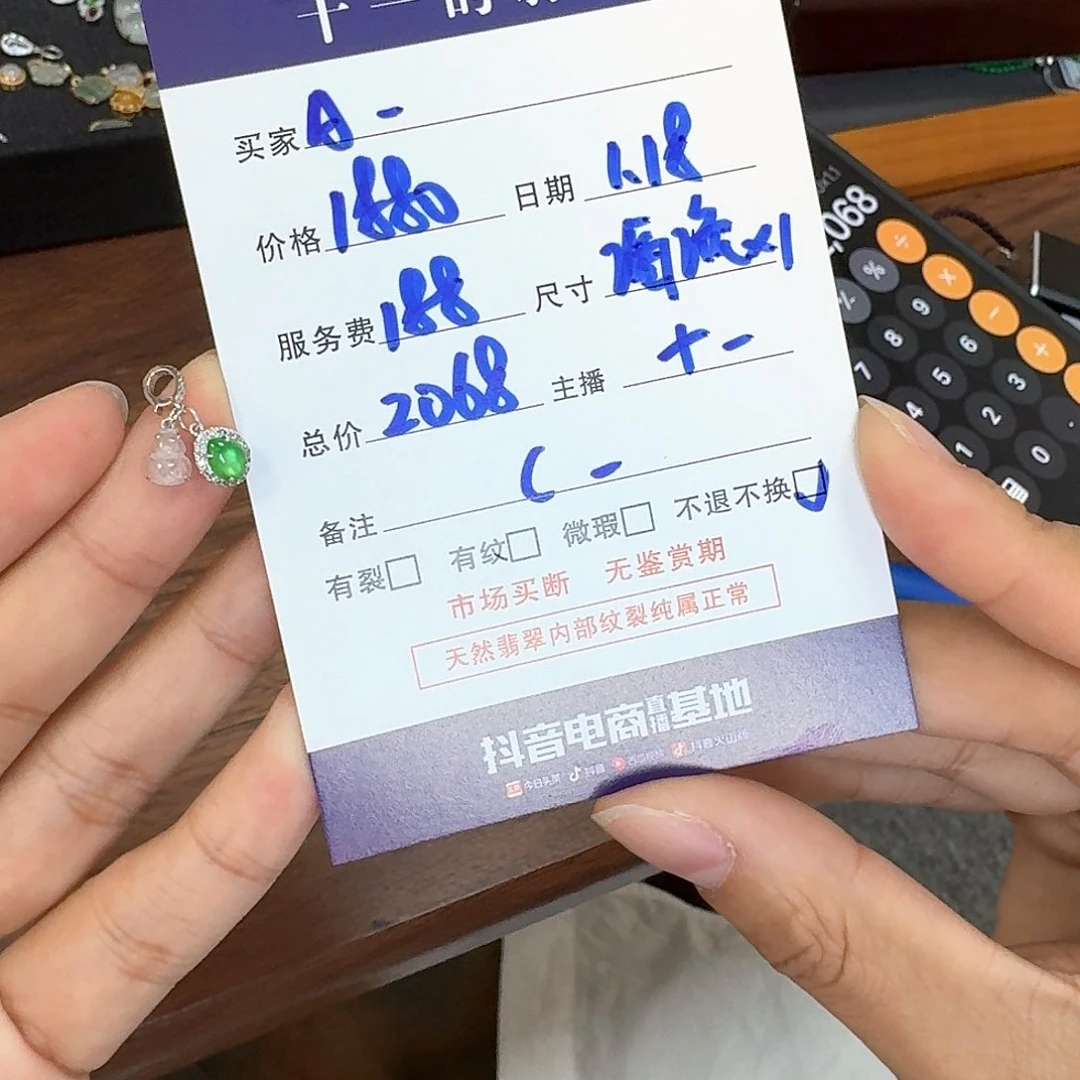 买家 A -
价格 1880 日期 1.18
服务费 188 尺寸 x1
总价 2068 主播 十一
备注 C -
有裂 有纹 微瑕 不退不换
市场买断 无鉴赏期
天然翡翠内部纹裂纯属正常
抖音电商直播基地
今日头条 抖音 抖音火山版
,068
÷
%
×
-
+
7
8
9
4
5
6
1
2
3
0